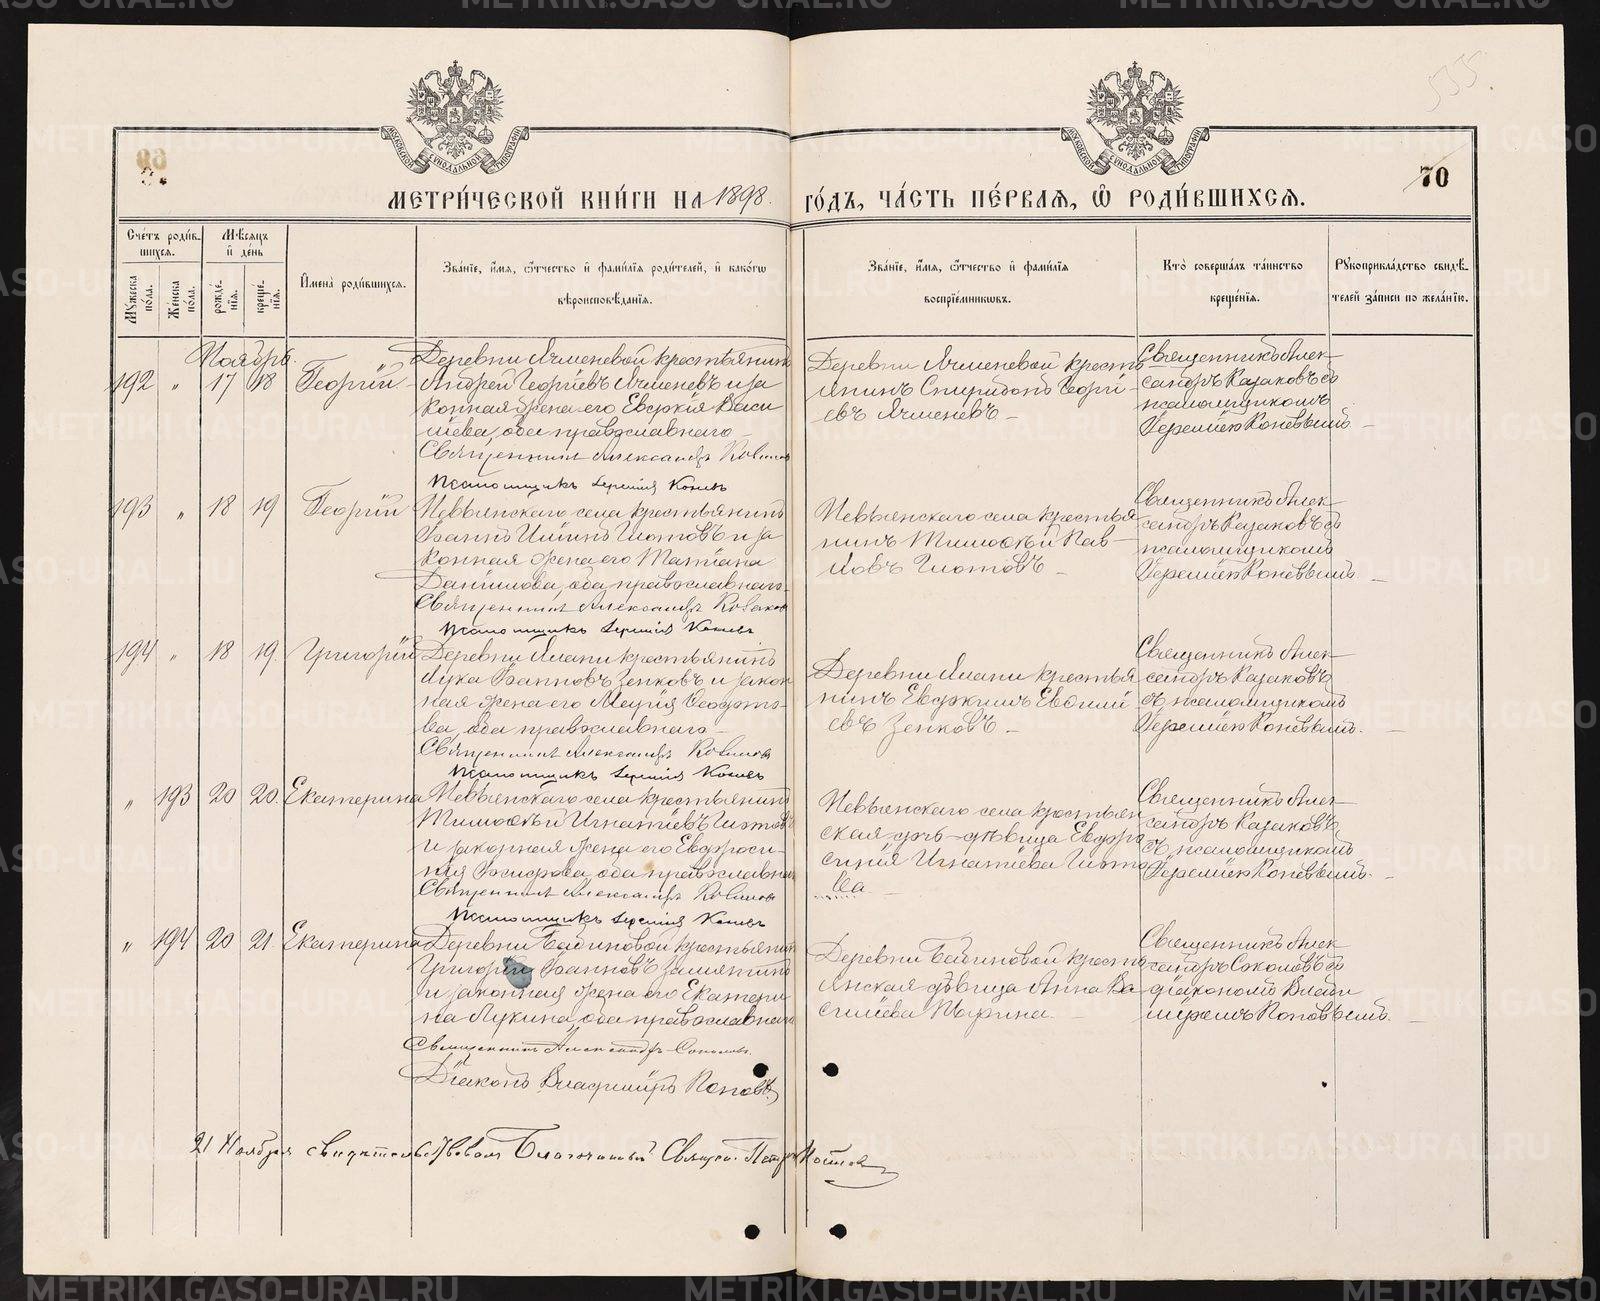 METRIKI.GASO-URAL.RU
555
70
МЕТРИ́ЧЕСКОЙ КНИ́ГИ НА 1898 ГО́ДЪ, ЧА́СТЬ ПЕ́РВАЯ, Ѿ РОДИ́ВШИХСЯ.
Сче́тъ роди́в-
шихся.
Мꙋ́жеска по́ла.
Же́нска по́ла.
Мѣ́сяцъ
и҆ де́нь
рожде́-
нїя.
креще́-
нїя.
И҆мена̀ роди́вшихся.
Зва́нїе, и҆́мя, ѻ҆́тчество и҆ фами́лїя роди́телей, и҆ како́гѡ
вѣроисповѣ́данїя.
Зва́нїе, и҆́мя, ѻ҆́тчество и҆ фами́лїя
воспрїе́мникѡвъ.
Кто̀ соверша́лъ та́инство
креще́нїя.
Рꙋкоприкла́дство свидѣ́-
телей за́писи по жела́нїю.
Ноябрь.
192 " 17 18 Георгій
Деревни Ячменевой крестьянинъ
Андрей Георгіевъ Ячменевъ и за
конная жена его Евдокія Васи
ліева, оба православнаго
Священникъ Александръ Казаковъ
Псаломщикъ Іеремія Коневъ
Деревни Ячменевой кресть
янинъ Спиридонъ Георгі
евъ Ячменевъ
Священникъ Алек-
сандръ Казаковъ съ
псаломщикомъ
Іереміею Коневымъ
193 " 18 19 Георгій
Невьянскаго села крестьянинъ
Іоаннъ Глотовъ и за
конная жена его Татіана
Даніилова, оба православнаго
Священникъ Александръ Казаковъ
Псаломщикъ Іеремія Коневъ
Невьянскаго села крестья
нинъ Тимоѳей Пав-
ловъ Глотовъ
Священникъ Алек-
сандръ Казаковъ съ
псаломщикомъ
Іереміею Коневымъ
194 " 18 19 Григорій
Деревни Ялани крестьянинъ
Лука Іоанновъ Зенковъ и закон
ная жена его Марія
ва, оба православнаго
Священникъ Александръ Казаковъ
Псаломщикъ Іеремія Коневъ
Деревни Ялани крестья
нинъ Евѳимі
евъ Зенковъ
Священникъ Алек-
сандръ Казаковъ
съ псаломщикомъ
Іереміею Коневымъ.
" 193 20 20. Екатерина
Невьянскаго села крестьянинъ
Тимоѳей Игнатіевъ Глотовъ
и законная жена его Евфроси-
нія Іосифова, оба православнаго
Священникъ Александръ Казаковъ
Псаломщикъ Іеремія Коневъ
Невьянскаго села крестьян
ская дѣвица Евфро
синія Игнатіева Глото
ва
Священникъ Алек-
сандръ Казаковъ
съ псаломщикомъ
Іереміею Коневымъ.
" 194 20 21 Екатерина
Деревни Бабиновой крестьянинъ
Григорій Іоанновъ Замятинъ
и законная жена его Екатери
на Лукина, оба православнаго
Священникъ Александръ Соколовъ.
Діаконъ Владиміръ Поповъ
Деревни Бабиновой кресть
янская дѣвица Анна Ва
силіева Пырина
Священникъ Алек
сандръ Соколовъ съ
діакономъ Влади
міромъ Поповымъ.
21 Ноября свидѣтельствовалъ Благочинный Священ. Петръ